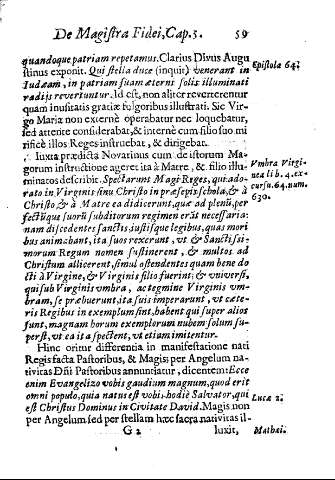 De Magistra Fidei, Cap. 5. 59
quandoque patriam repetamus. Clarius Divus Augu
stinus exponit. Qui stella duce (inquit) venerant in Epistola 64.
Iudæam, in patriam suam æterni solis illuminati
radijs revertuntur. Id est, non aliter reverterentur
quam inusitatis gratiæ fulgoribus illustrati. Sic Vir-
go Maria non externè operabatur nec loquebatur,
sed attentè considerabat, & internè cum filio suo mi
rificè illos Reges instruebat, & dirigebat.
Iuxta prædicta Novarinus cum de istorum Ma-
gorum instructione ageret ita à Matre, & filio illu- Vmbra Virgi-
minatos describit. Spectarunt Magi Reges, quę ado- nea lib. 4. ex-
rato in Virginis sinu Christo in præsepis schola, & à cursu 64. num.
Christo & à Matre ea didicerunt, quæ ad plenũ, per 630.
fectiquę suorũ subditorum regimen erãt necessaria:
nam discedentes sanctis, iustisque legibus, quas mori
bus animabant, ita suos rexerunt, vt & Sanctissi-
morum Regum nomen sustinerent, & multos ad
Christum allicerent, simul ostendentes quam bene do
cti à Virgine, & Virginis filio fuerint; & vniversi,
qui sub Virginis vmbra, ac tegmine Virginis vm-
bram, se præbuerunt, ita suis imperarunt, vt cæte-
ris Regibus in exemplum sint, habent qui super alios
sunt, magnam horum exemplorum nubem solum su-
perst, vt ea ita spectent, vt etiam imitentur.
Hinc oritur differentia in manifestatione nati
Regis facta Pastoribus, & Magis; per Angelum na-
tivitas Dñi Pastoribus annunciatur, dicentem: Ecce
enim Evangelizo vobis gaudium magnum, quod erit
omni populo, quia natus est vobis hodie Salvator, qui
est Christus Dominus in Civitate David. Magis non Lucæ 2.
per Angelum sed per stellam hæc sacra nativitas il-
G 2 luxit, Mathæi.